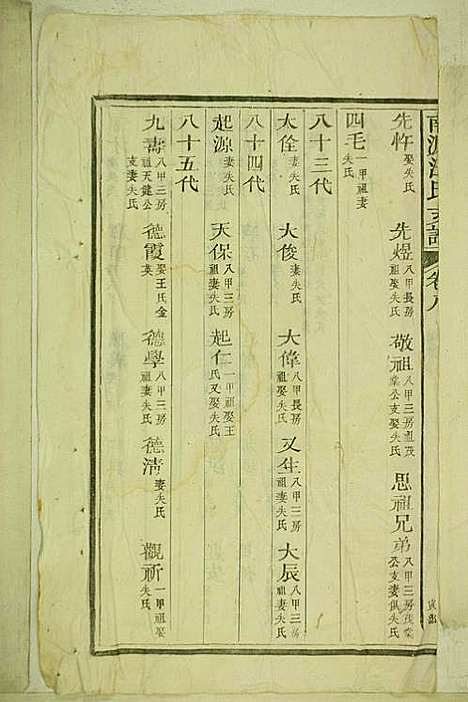 先忤娶失氏 先煜八甲長房娶失氏 敬祖八甲三房祖茂棠公支娶失氏 思祖兄弟八甲三房茂棠公支妻俱失氏
四毛一甲祖妻失氏
八十三代
大佺妻失氏 大俊妻失氏 大偉八甲長房祖娶失氏 又生八甲三房祖妻失氏 大辰八甲三房祖妻失氏
八十四代
起源妻失氏 天保八甲三房娶失氏 起仁一甲娶王氏又娶失氏
八十五代
九壽八甲三房祖天健公支妻失氏 德霞娶王氏金英 德學八甲三房祖妻失氏 德清妻失氏 觀祈一甲祖娶失氏